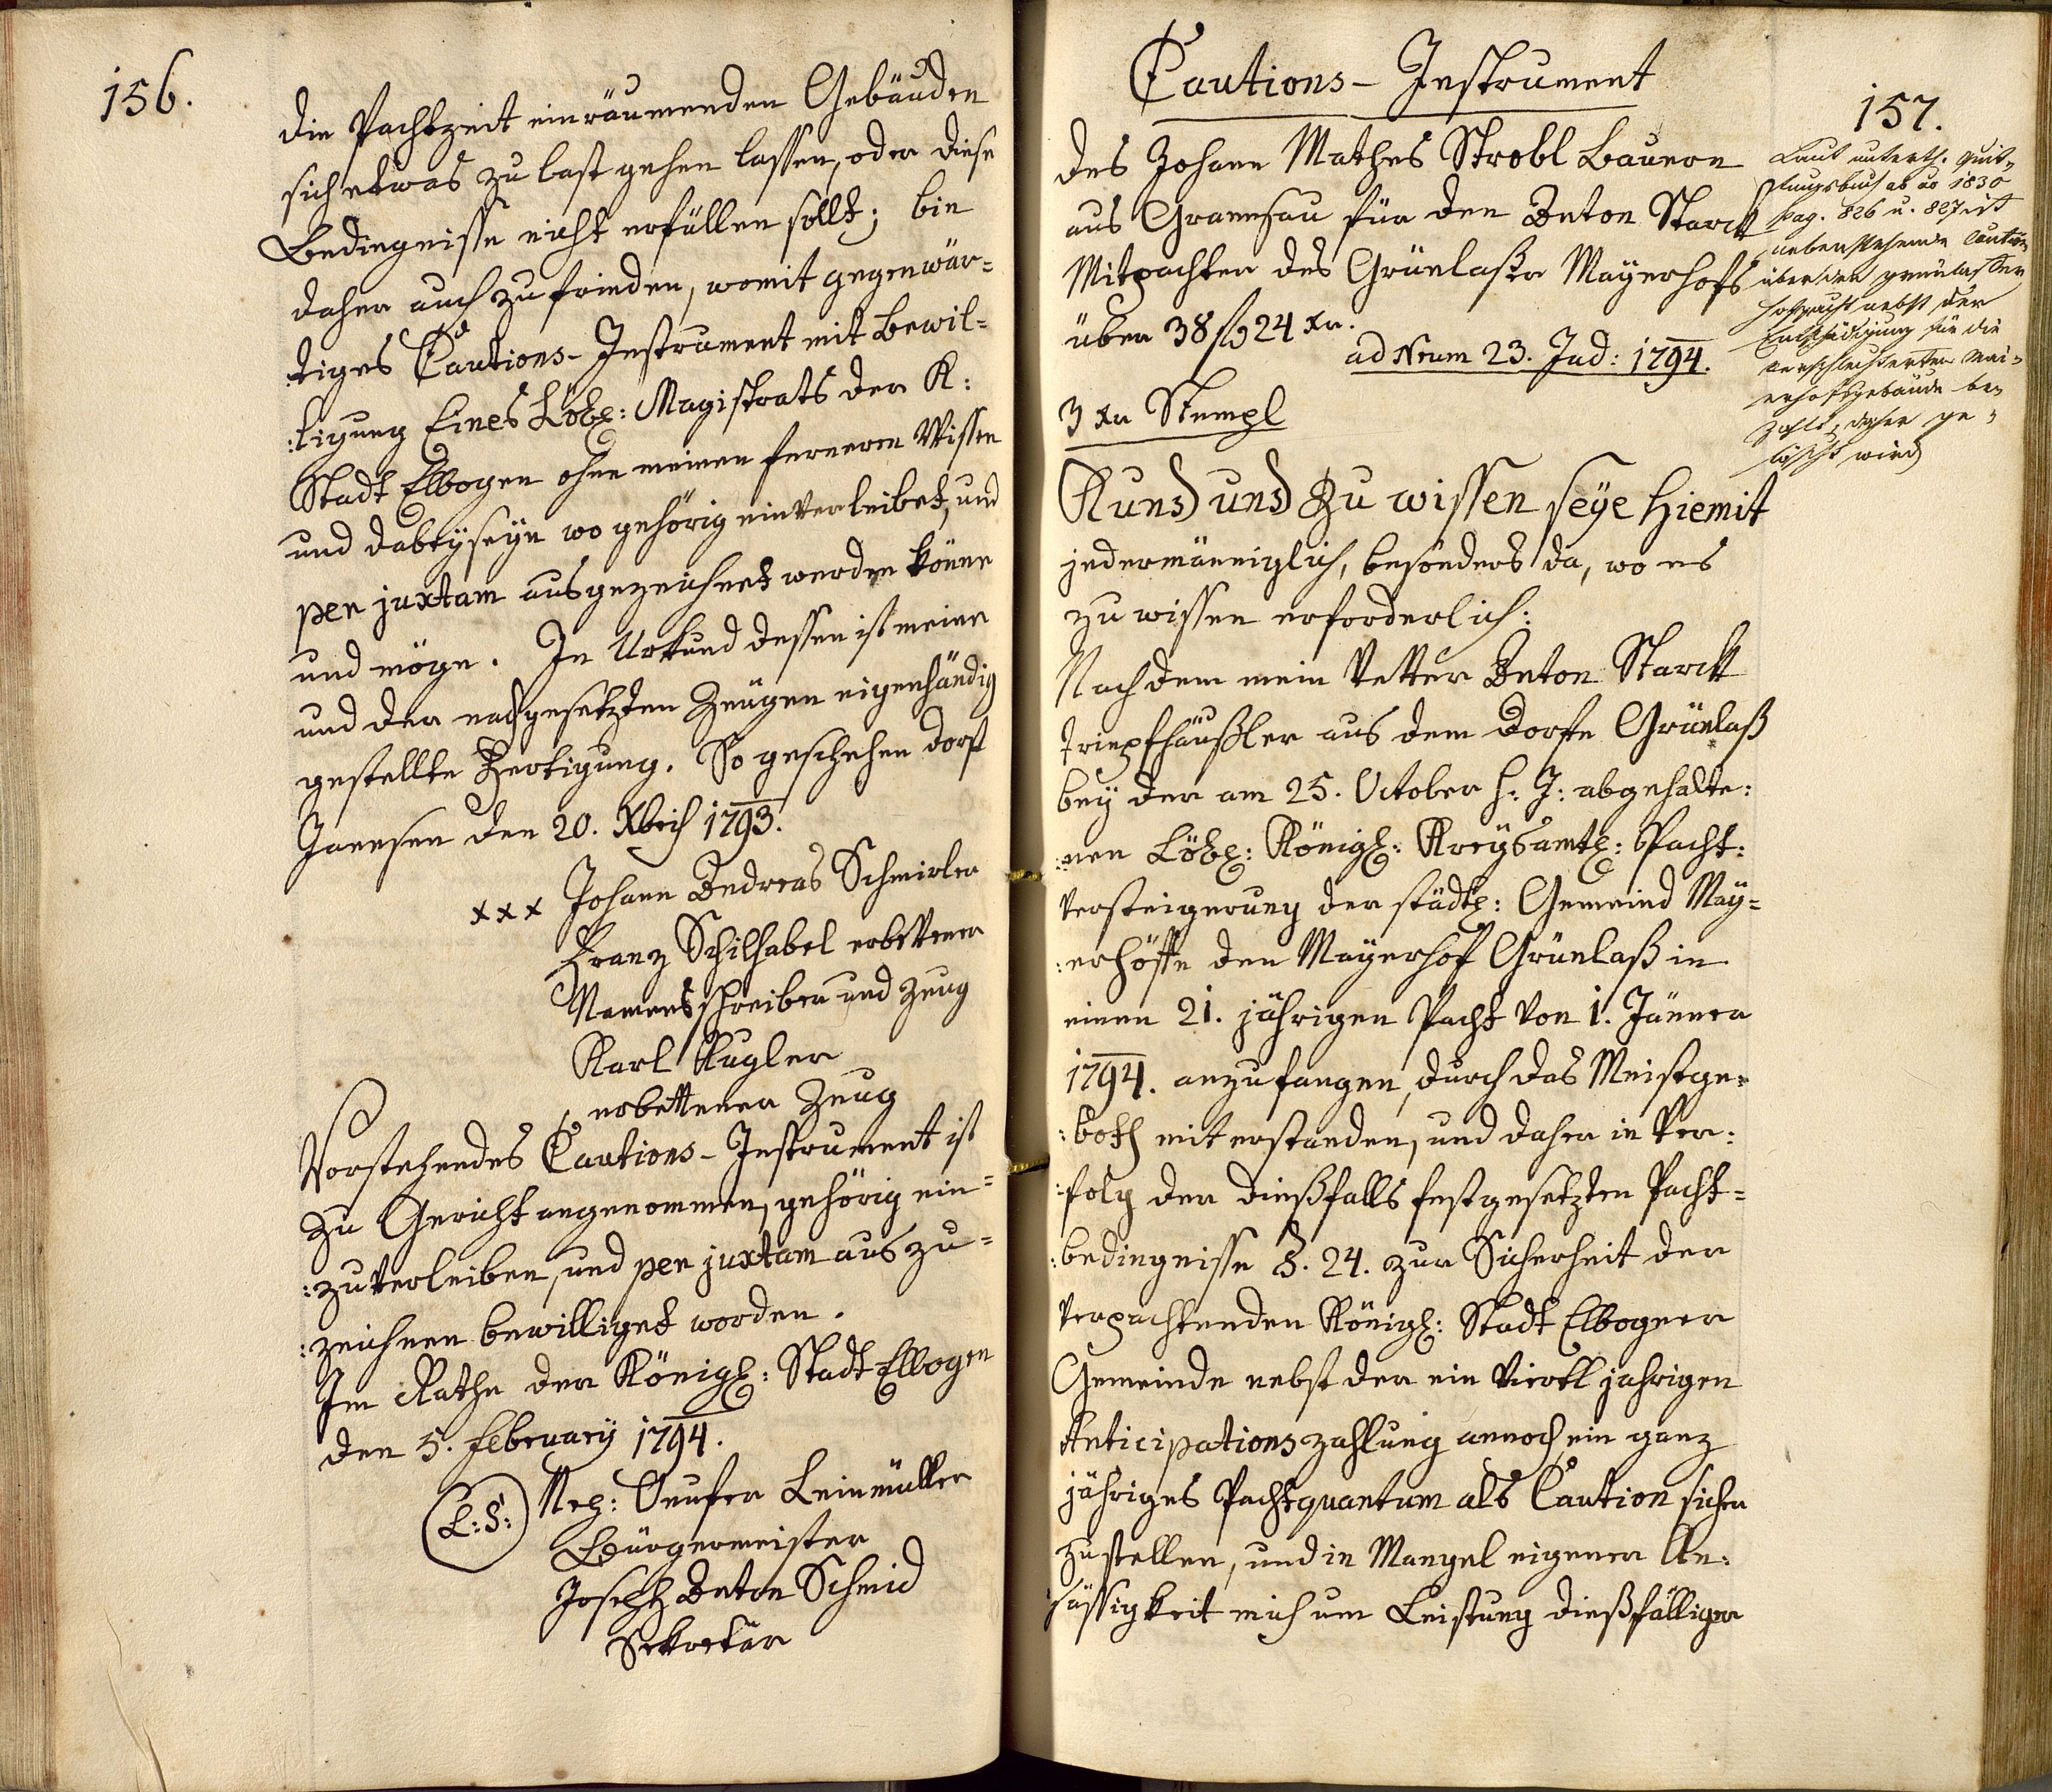 156.
die Pachtzeit einräumenden Gebäuden
sich etwas zu last gehen lassen, oder diese
Bedingnisse nicht erfüllen sollt; bin
daher auch zufrieden, womit gegenwär=
:tiges Cautions-Instrument mit Bewil=
:ligung Eines Löbl: Magistrats der K:
Stadt Elbogen ohne meinen ferneren Wissen
und dabeÿseÿn wo gehörig einverleibet, und
per juxtam ausgezeichnet werden könne
und möge. In Urkund dessen ist meine
und der nachgesetzten Zeugen eigenhändig
gestellte Fertigung. So geschehen dorf
Janesen den 20. Xbris 1793.
xxx Johann Andreas Schmirler
Franz Schilhabel erbettener
Namensschreiber und Zeug
Karl Kugler
erbettener Zeug
Vorstehendes Cautions-Instrument ist
zu Gericht angenommen, gehörig ein=
:zuverleiben, und per juxtam auszu=
:zeichnen bewilliget worden.
Im Rathe der Königl: Stadt Elbogen
den 5. Februarÿ 1794.
(L:S:) Nep: Onufer Leinmüller
Bürgermeister
Joseph Anton Schmid
Sekretär
Cautions-Instrument
157.
des Johann Mathes Strobl Bauern
aus Granesau für den Anton Starck
Mitpachter des Grünlaßer Maÿerhofs
über 38 f 24 xr.
ad Num 23. Jud: 1794.
3 xr Stempl
Laut unterth. Quit=
tungsbuch ab ao 1830
pag. 826 u. 827 ist
nebenstehende Caution
über den grünlasser
Hofpacht nebst der
Entschädigung für die
verschlechterten Mai=
erhofsgebäude be=
zahlt, daher ge=
löscht wird
Kund und zu wissen seÿe hiemit
jedermänniglich, besonders da, wo es
zu wissen erforderlich:
Nachdem mein Vetter Anton Starck
Tripfhäußler aus dem Dorfe Grünlaß
beÿ der am 25. October h: J: abgehalte:
:nen Löbl: Königl: Kreÿsamtl: Pacht:
versteigerung der städtl: Gemeind Maÿ=
:erhöffe den Maÿerhof Grünlaß in
einen 21. jährigen Pacht von 1. Jänner
1794. anzufangen, durch das Meistge=
:both mit erstanden, und daher in Ver:
:folg der dießfalls festgesetzten Pacht=
:bedingnisse §. 24. zur Sicherheit der
verpachtenden Königl: Stadt Elbogner
Gemeinde nebst der ein viertl jahrigen
Anticipationszahlung annoch ein ganz
jähriges Pachtquantum als Caution sicher
zustellen, und in Mangel eigener An:
sässigkeit mich um Leistung dießfälliger